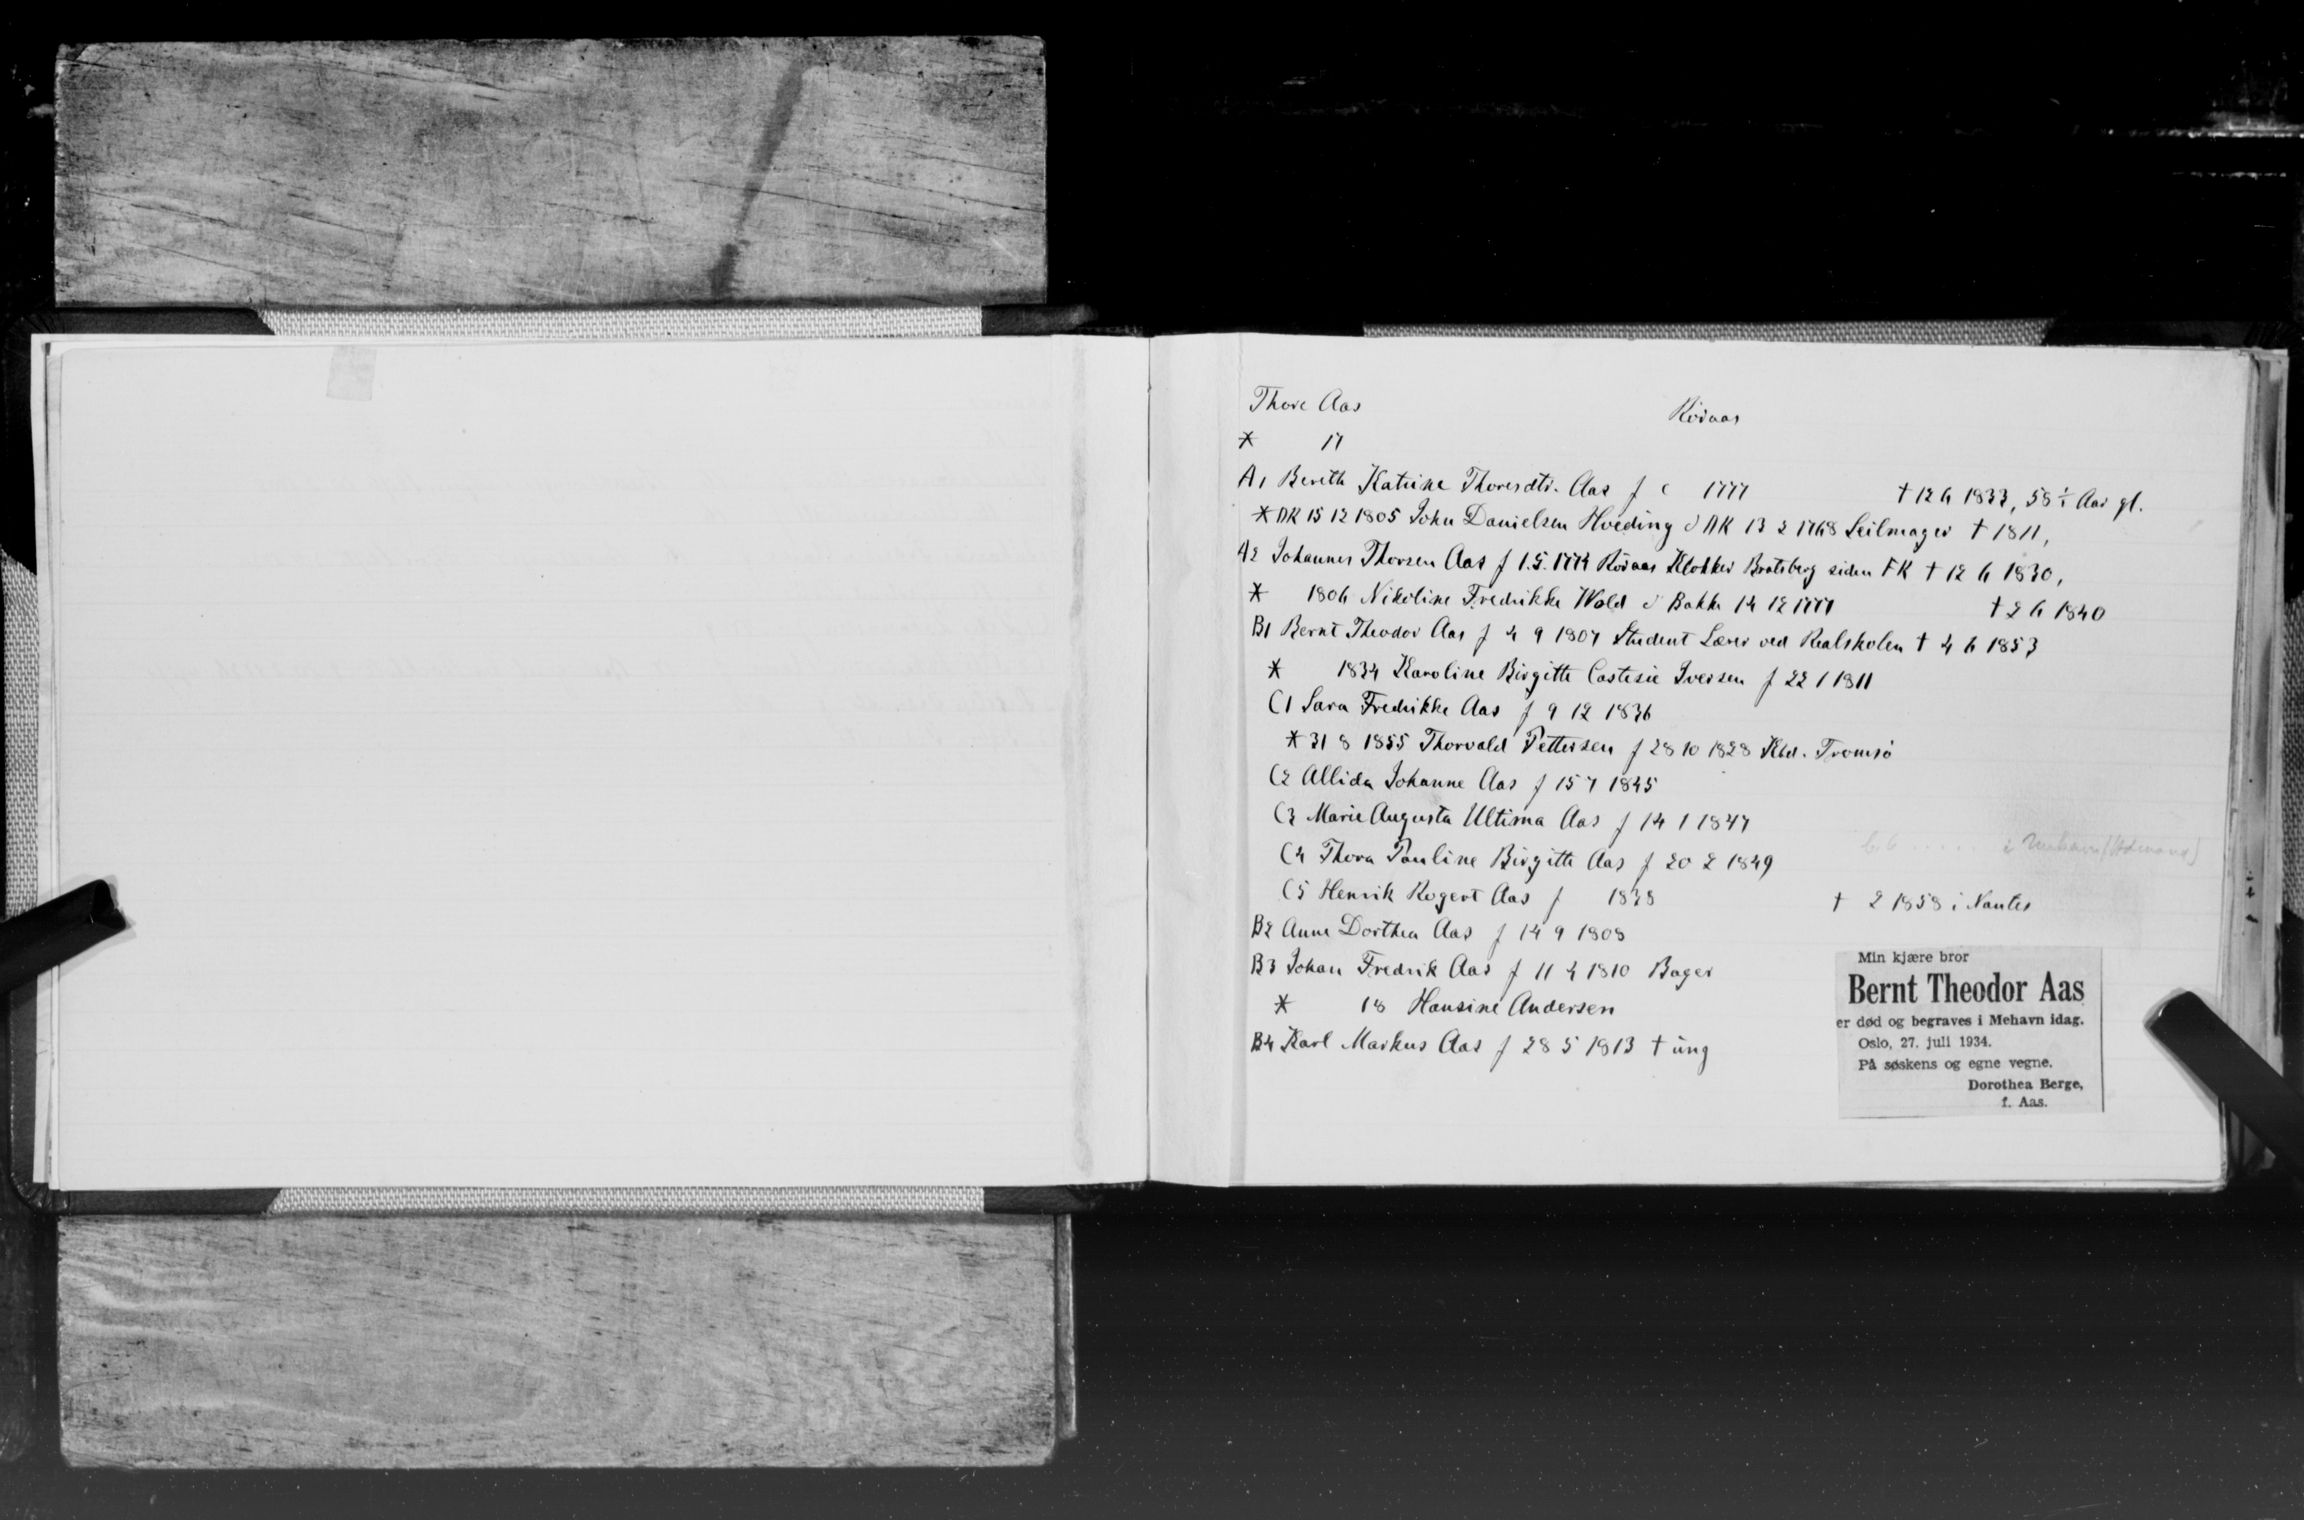 Thore Aas Röraas
* 17
A1 Bereth Katrine Thoresdtr. Aas f c 1777 † 12 6 1833, 58 ½ Aar gl.
* DK 15 12 1805 John Danielsen Hveding d DK 13 2 1768 Seilmager † 1811,
A2 Johannes Thorsen Aas f 1.5.1774 Röraas Klokker Bratsberg siden FK † 12 6 1830,
* 1806 Nikoline Fredrikke Wold d Bakke 14 12 1777 † 2 6 1840
B1 Bernt Theodor Aas f 4 9 1807 Student Lærer ved Realskolen † 4 6 1853
* 1834 Karoline Birgitte Iversen f 22 1 1811
C1 Sara Fredrikke Aas f 9 12 1836
* 31 8 1855 Thorvald Pettersen f 28 10 1828 Kbd. Tromsö
C2 Allida Johanne Aas f 15 7 1845
C3 Marie Augusta Ultima Aas f 14 1 1847
C4 Thora Pauline Birgitte Aas f 20 2 1849
C5 Henrik Rogert Aas f 1838 † 2 1858 i Nantes
B2 Anne Dorthea Aas f 14 9 1808
B3 Johan Fredrik Aas f 11 4 1810 Bager
* 18 Hansine Andersen
B4 Karl Markus Aas f 28 5 1813 † ung
Min kjære bror
Bernt Theodor Aas
er død og begraves i Mehavn idag.
Oslo, 27. juli 1934.
På søskens og egne vegne.
Dorothea Berge,
f. Aas.